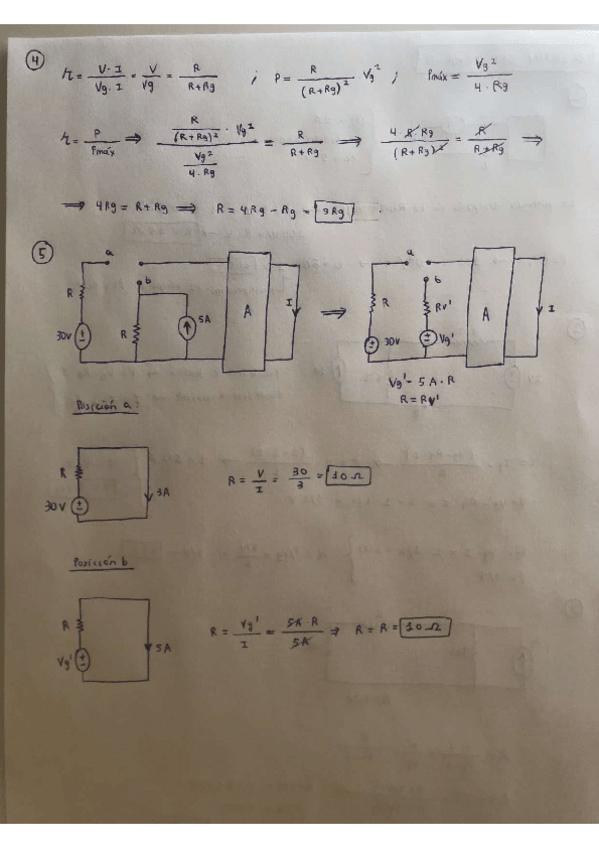 4
η = V·I / Vg·I = V / Vg = R / R+Rg ; P = R / (R+Rg)² Vg² ; Pmáx = Vg² / 4·Rg
η = P / Pmáx ⟹ R / (R+Rg)² · Vg² / Vg² / 4·Rg = R / R+Rg ⟹ 4·R Rg / (R+Rg)² = R / R+Rg ⟹
⟹ 4Rg = R+Rg ⟹ R = 4Rg - Rg = 3Rg
5
a b R 30V R 5A A I ⟹ a b R 30V Rv' Vg' A I
Vg' = 5A·R
R = Rv'
Posición a:
R 30V 3A R = V / I = 30 / 3 = 10Ω
Posición b
R Vg' 5A R = Vg' / I = 5A·R / 5A ⟹ R = R = 10Ω